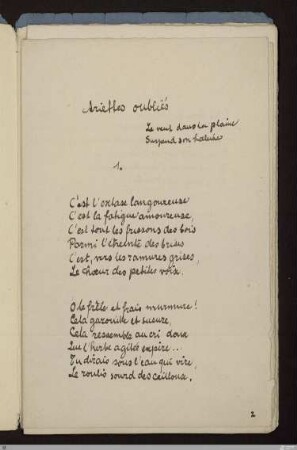 Ariettes oubliés
Le vent dans la plaine
Suspend son haleine
1.
C'est l'extase langoureuse
C'est la fatigue amoureuse,
C'est tout les frissons des bois
Parmi l'étreinte des brises
C'est, vers les ramures grises,
Le chœur des petites voix.
O le frêle et frais murmure!
Cela gazouille et susure,
Cela ressemble au cri doux
Que l'herbe agitée expire...
Tu dirais sous l'eau qui vire,
Le roulis sourd des cailloux.
2